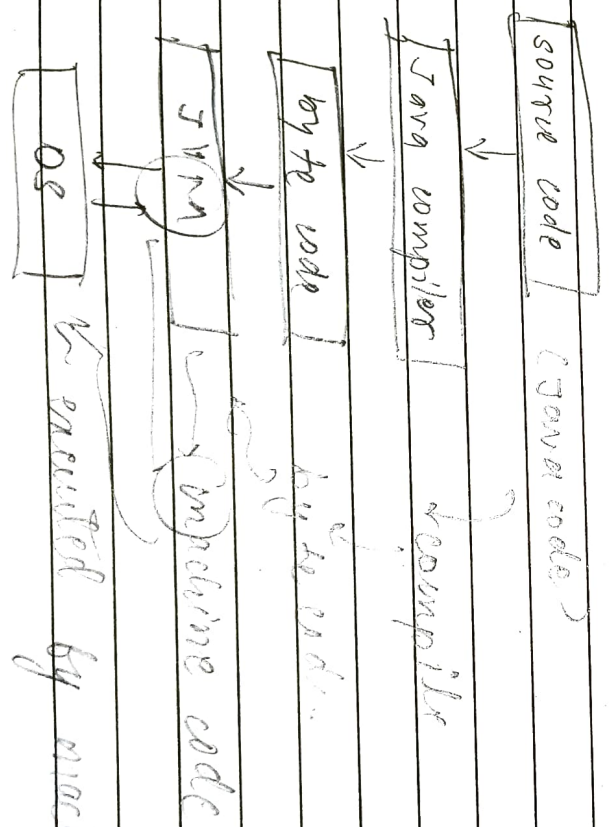 source code (Java code)
Java compiler compiler
byte code byte code
JVM machine code
OS executed by